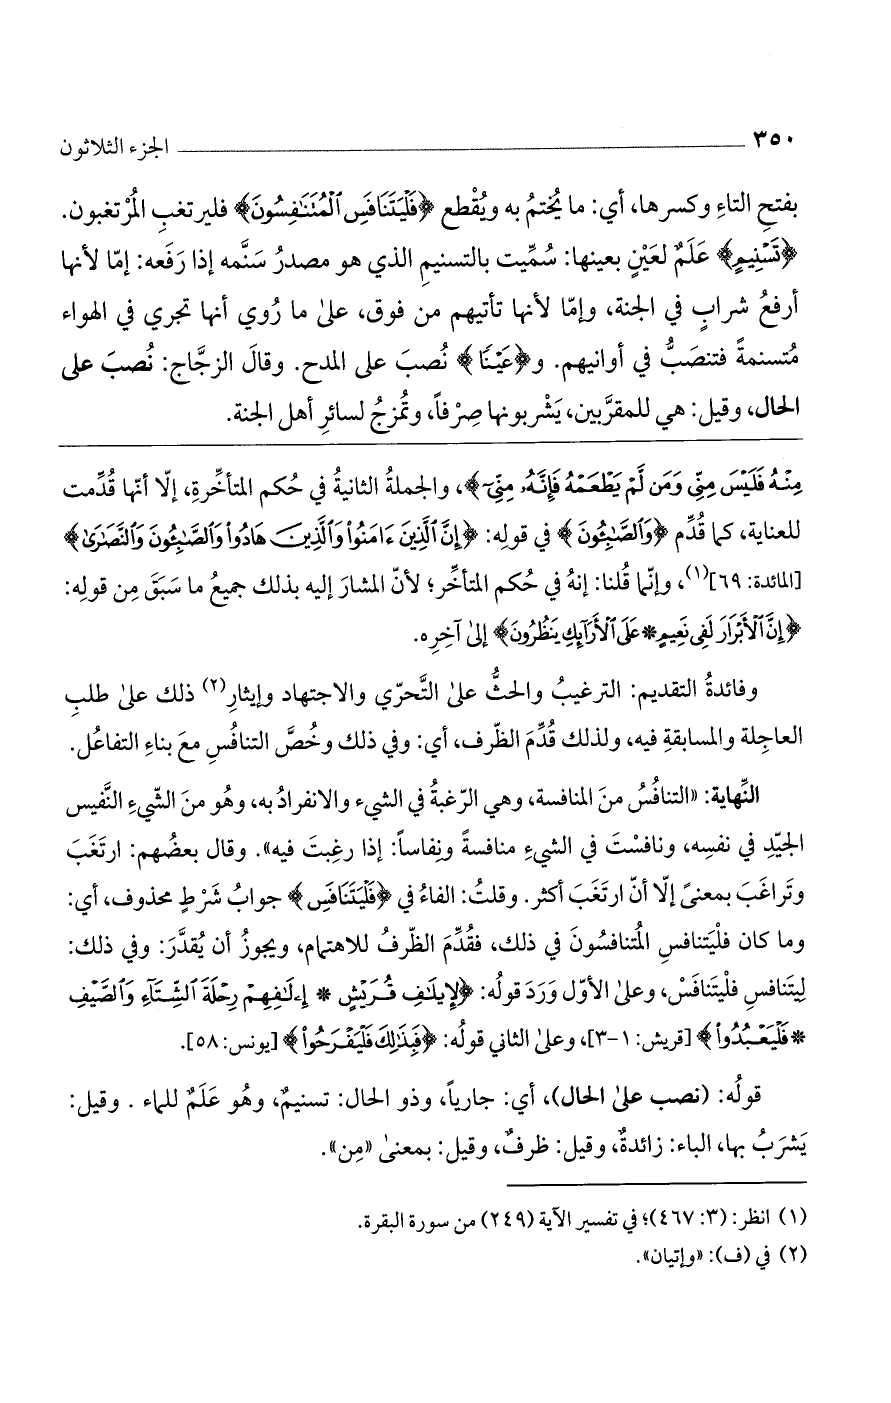 ٣٥٠ الجزء الثلاثون
بفتحِ التاءِ وكسرها، أي: ما يُختمُ به ويُقْطع ﴿فَلْيَتَنَافَسِ ٱلْمُتَنَٰفِسُونَ﴾ فليرتغبِ المُرْتغبون.
﴿تَسْنِيمٍ﴾ عَلَمٌ لعَيْنٍ بعينها: سُمِّيت بالتسنيمِ الذي هو مصدرُ سَنَّمه إذا رَفَعه: إمّا لأنها
أرفعُ شرابٍ في الجنة، وإمّا لأنها تأتيهم من فوق، علىٰ ما رُوي أنها تجري في الهواء
مُتسنمةً فتنصَبُّ في أوانيهم. و﴿عَيْنًا﴾ نُصبَ على المدح. وقالَ الزجَّاج: نُصبَ على
الحال، وقيل: هي للمقرَّبين، يَشْربونها صِرْفاً، وتُمزجُ لسائرِ أهل الجنة.
مِنْهُ فَلَيْسَ مِنِّي وَمَن لَّمْ يَطْعَمْهُ فَإِنَّهُۥ مِنِّيٓ﴾، والجملةُ الثانيةُ في حُكم المتأخِّرةِ، إلّا أنّها قُدِّمت
للعناية، كما قُدِّم ﴿وَٱلصَّٰبِـُٔونَ﴾ في قولِه: ﴿إِنَّ ٱلَّذِينَ ءَامَنُواْ وَٱلَّذِينَ هَادُواْ وَٱلصَّٰبِـُٔونَ وَٱلنَّصَٰرَىٰ﴾
[المائدة: ٦٩](١)، وإنّما قُلنا: إنهُ في حُكم المتأخِّر؛ لأنّ المشارَ إليه بذلك جميعُ ما سَبَقَ مِن قولِه:
﴿إِنَّ ٱلْأَبْرَارَ لَفِي نَعِيمٍ * عَلَى ٱلْأَرَآئِكِ يَنظُرُونَ﴾ إلىٰ آخِرِه.
وفائدةُ التقديم: الترغيبُ والحثُّ علىٰ التَّحرّي والاجتهاد وإيثارِ(٢) ذلك علىٰ طلبِ
العاجِلة والمسابقةِ فيه، ولذلك قُدِّمَ الظّرف، أي: وفي ذلك وخُصَّ التنافُسِ معَ بناءِ التفاعُل.
النِّهاية: «التنافُسُ منَ المنافسة، وهي الرّغبةُ في الشيء والانفرادُ به، وهُو منَ الشّيءِ النَّفيس
الجيّدِ في نفسِه، ونافسْتَ في الشيءِ منافسةً ونِفاساً: إذا رغِبتَ فيه». وقال بعضُهم: ارتَغَبَ
وتَراغَبَ بمعنىً إلّا أنّ ارتَغَبَ أكثر. وقلتُ: الفاءُ في ﴿فَلْيَتَنَافَسِ﴾ جوابُ شَرْطٍ محذوف، أي:
وما كان فلْيَتنافسِ المُتنافسُونَ في ذلك، فقُدِّمَ الظّرفُ للاهتمام، ويجوزُ أن يُقدَّرَ: وفي ذلك:
لِيتَنافسِ فلْيتَنافَسْ، وعلىٰ الأوّل وَرَدَ قولُه: ﴿لِإِيلَٰفِ قُرَيْشٍ * إِۦلَٰفِهِمْ رِحْلَةَ ٱلشِّتَآءِ وَٱلصَّيْفِ
* فَلْيَعْبُدُواْ﴾ [قريش: ١-٣]، وعلىٰ الثاني قولُه: ﴿فَبِذَٰلِكَ فَلْيَفْرَحُواْ﴾ [يونس: ٥٨].
قولُه: (نصب علىٰ الحال)، أي: جارياً، وذو الحال: تسنيمٌ، وهُو عَلَمٌ للماء. وقيل:
يَشرَبُ بها، الباء: زائدةٌ، وقيل: ظرفٌ، وقيل: بمعنىٰ «مِن».
(١) انظر: (٣: ٤٦٧)؛ في تفسير الآية (٢٤٩) من سورة البقرة.
(٢) في (ف): «وإتيان».